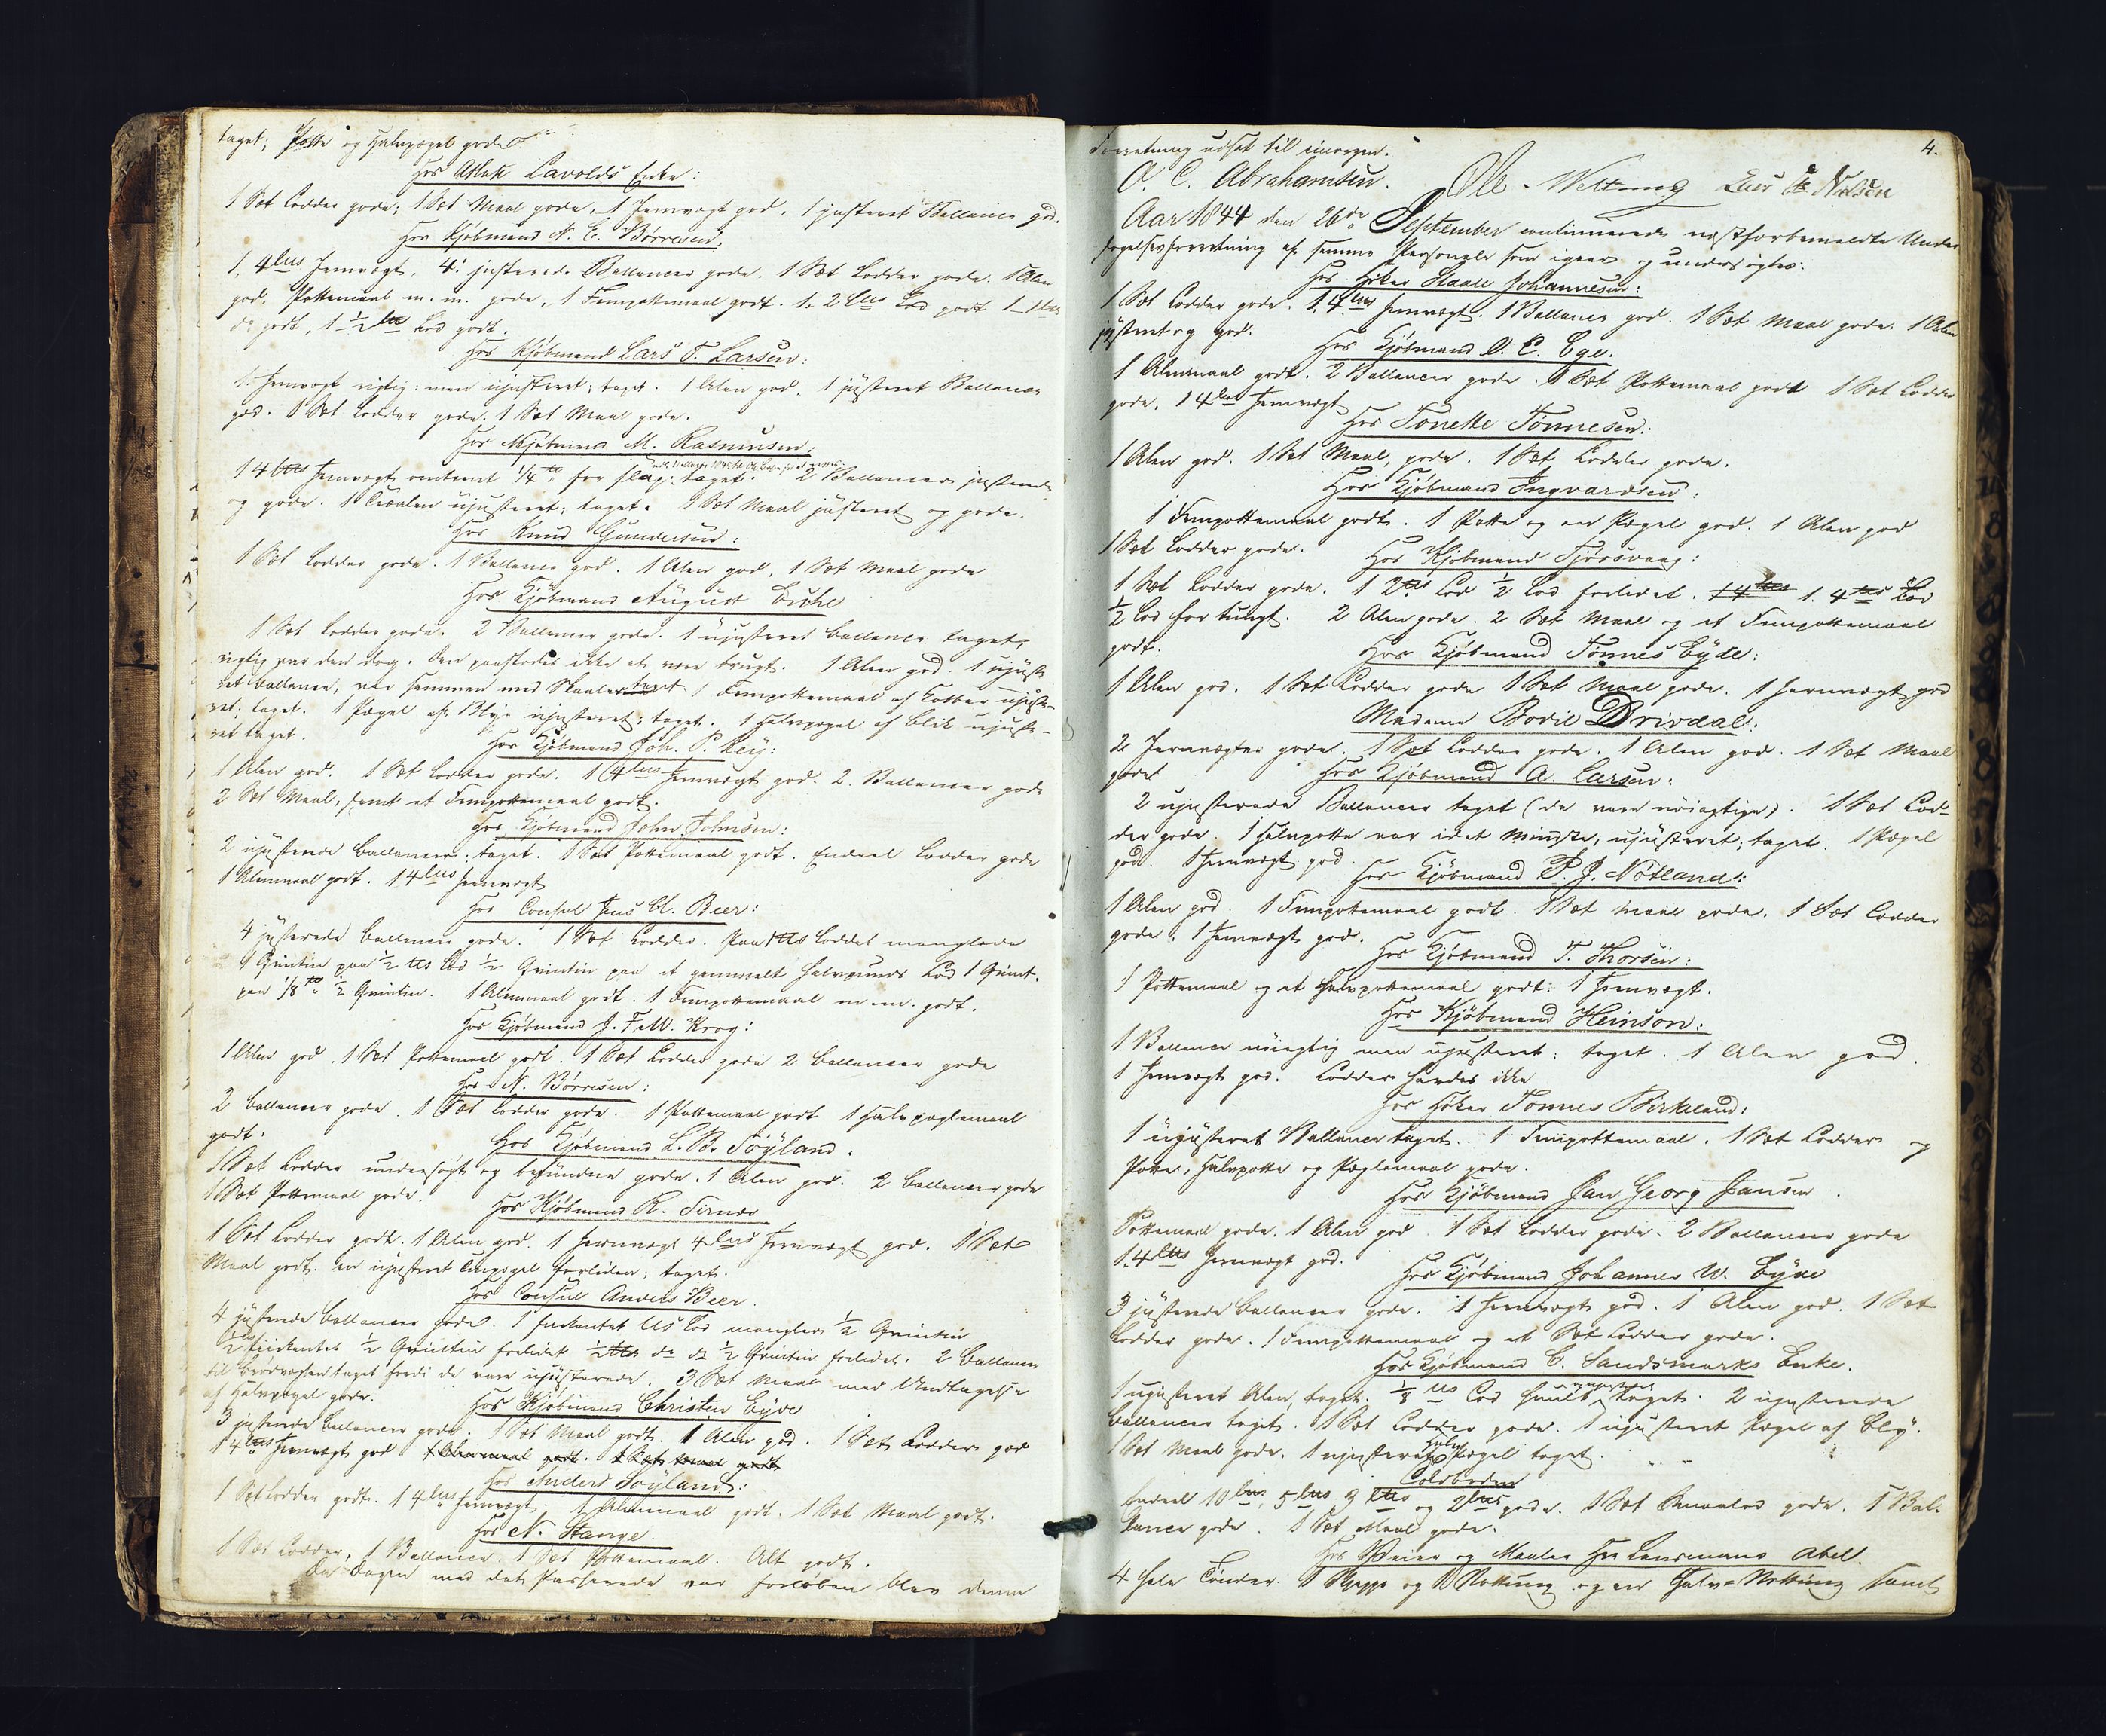 taget; Potte og Halvpægel gode
Hos Atlak Lavolds Enke:
1 Sæt Lodder gode; 1 Sæt Maal gode, 1 Jernvægt god, 1 justeret Ballance god.
Hos Kjøbmand N. E. Børresen:
1, 4 lbs Jernvægt. 4 justerede Ballancer gode. 1 Sæt Lodder gode. 1 Alen
god. Pottemaal m. m. gode, 1 Fempottemaal godt. 1. 2 lbs Lod godt 1 1 lbs
do godt, 1 ½ lb Lod godt.
Hos Kjøbmand Lars T. Larsen:
1. Jernvægt rigtig: men ujusteret; taget. 1 Alen god, 1 justeret Ballance
god. 1 Sæt Lodder gode. 1 Sæt Maal gode.
Hos Kjøbmand M. Rasmusen:
1 4 lbs Jernvægt omtrent ¼ for slag; taget. 2 Ballancer justerede
og gode. 1 Alen ujusteret; taget. 1 Sæt Maal justeret og gode.
Hos Knud Gundersen:
1 Sæt Lodder gode. 1 Ballance god. 1 Alen god, 1 Sæt Maal gode
Hos Kjøbmand August
1 Sæt Lodder gode. 2 Ballancer gode. 1 ujusteret ballance taget,
rigtig var den dog. Den paastodes ikke at være brugt. 1 Alen god. 1 ujuste
ret ballance, var sammen med Skaaler taget 1 Fempottemaal af Kobber ujuste-
ret; taget. 1 Pægel af Blye ujusteret; taget. 1 Halvpægel af blik ujuste-
ret taget.
Hos Kjøbmand Joh. P. Rey:
1 Alen god. 1 Sæt Lodder gode. 1 4 lbs Jernvægt god. 2 Ballancer gode
2 Sæt Maal, samt et Fempottemaal godt.
Hos Kjøbmand John Johnsen:
2 ujusterede ballancer: taget. 1 Sæt Pottemaal godt. Endeel Lodder gode
1 Alenmaal godt. 1 4 lbs Jernvægt
Hos Consul Jens Cl. Beer:
4 justerede ballancer gode. 1 Sæt Lodder. Paa 1 lbs Loddet manglede
1 Quintin paa ½ lbs Lod ½ Quintin paa et gammelt Halvpunds Lod 1 Quint.
paa ⅛ ½ Quintin. 1 Alenmaal godt. 1 Fempottemaal m. m. godt.
Hos Kjøbmand J. F. W. Krog:
1 Alen god. 1 Sæt Pottemaal godt. 1 Sæt Lodder gode 2 ballancer gode
Hos N. Børresen:
2 ballancer gode. 1 Sæt Lodder gode. 1 Pottemaal godt 1 Halvpæglemaal
godt.
Hos Kjøbmand L. B. Søyland.
1 Sæt Lodder undersøgt og befundne gode. 1 Alen god. 2 ballancer gode
1 Sæt Pottemaal gode.
Hos Kjøbmand R. Tirnæs
1 Sæt Lodder godt. 1 Alen god. 1 Jernvægt 4 lbs Jernvægt god. 1 Sæt
Maal godt. en ujusteret pægel forliden; taget.
Hos Consul Anders Beer.
4 justerede ballancer gode. 1 lbs Lod mangler ½ Quintin
½ ½ Quintin forlidet ½ lbs do do ½ Quintin forlidet. 2 ballancer
til taget fordi de vare ujusterede. 3 Sæt Maal med Undtagelse
af Halvpægel gode.
Hos Kjøbmand Christen Eyde
3 justerede ballancer gode. 1 Sæt Maal godt. 1 Alen god. 1 Sæt Lodder god
1 4 lbs Jernvægt god 1 Alenmaal godt. 1 Sæt Maal godt
Hos Anders Søyland:
1 Sæt Lodder godt. 1 4 lbs Jernvægt. 1 Alenmaal godt. 1 Sæt Maal godt.
Hos N. Stange.
1 Sæt Lodder, 1 Ballance. 1 Sæt Pottemaal. Alt godt.
Da Dagen med det Passerede var forløben blev denne
4.
Forretning udsat til imorgen.
O. C. Abrahamsen. Ole Weltzing Lars Nielsen
Aar 1844 den 26de September continueredes næstforbemeldte Under
søgelsesforretning af samme Personale som igaar og undersøgtes:
Hos Høker Staale Johannesen:
1 Sæt Lodder gode. 1. 4 lbs Jernvægt. 1 Ballance god. 1 Sæt Maal gode. 1 Alen
justeret og god.
Hos Kjøbmand O. E. Ege.
1 Alenmaal godt. 2 Ballancer gode. 1 Sæt Pottemaal godt 1 Sæt Lodder
gode, 1 4 lbs Jernvægt
Hos Tonette Tonnesen:
1 Alen god. 1 Sæt Maal, gode. 1 Sæt Lodder gode.
Hos Kjøbmand Ingvardsen:
1 Fempottemaal godt. 1 Potte og en Pægel god. 1 Alen god
1 Sæt Lodder gode.
Hos Kjøbmand Tjørsvaag:
1 Sæt Lodder gode. 1 2 lbs Lod ½ Lod forlidet. 1 4 lbs 1. 4 lbs Lod
½ Lod for tungt. 2 Alen gode. 2 Sæt Maal og et Fempottemaal
godt.
Hos Kjøbmand Tønnes Eyde:
1 Alen god. 1 Sæt Lodder gode 1 Sæt Maal gode. 1 Jernvægt god
Madame Bodil Drivdal:
2 Jernvægter gode. 1 Sæt Lodder gode. 1 Alen god. 1 Sæt Maal
godt
Hos Kjøbmand A. Larsen:
2 ujusterede Ballancer taget (de vare nøiagtige). 1 Sæt Lod-
der gode. 1 Halvpotte var idet mindste, ujusteret; taget. 1 Pægel
god. 1 Jernvægt god.
Hos Kjøbmand P. J. Nøtland:
1 Alen god. 1 Fempottemaal godt. 1 Sæt Maal gode. 1 Sæt Lodder
gode. 1 Jernvægt god.
Hos Kjøbmand T. Thorsen:
1 Pottemaal og et Halvpottemaal godt: 1 Jernvægt.
Hos Kjøbmand Heinson:
1 Ballance nøiagtig men ujusteret: taget. 1 Alen god.
1 Jernvægt god. Lodder havdes ikke
Hos Høker Tonnes Birkeland:
1 ujusteret Ballance taget. 1 Fempottemaal. 1 Sæt Lodder og
Potte, Halvpotte og Pæglemaal gode.
Hos Kjøbmand Jan Georg Jansen.
Pottemaal gode. 1 Alen god 1 Sæt Lodder gode. 2 Ballancer gode
1. 4 lbs Jernvægt god.
Hos Kjøbmand Johannes W. Eyde
3 justerede ballancer gode. 1 Jernvægt god. 1 Alen god. 1 Sæt
Lodder gode. 1 Fempottemaal og et Sæt Lodder gode.
Hos Kjøbmand C. Sandsmarks Enke.
1 ujusteret Alen, taget. ⅛ lbs Lod ujusteret taget. 2 ujusterede
ballancer taget. 1 Sæt Lodder gode. 1 ujusteret Pægel af bly.
1 Sæt Maal gode. 1 ujusteret Halv Pægel taget.
Toldboden
Endeel 10 lbs, 5 lbs 3 lbs og 2 lbs gode. 1 Sæt Smaalod gode. 1 Bal-
lance gode. 1 Sæt Maal gode.
Hos Veier og Maaler Hr Lensmand Abell.
4 hele Tønder. 1 Skjeppe og 1 Notting og en Halv-Notting samt